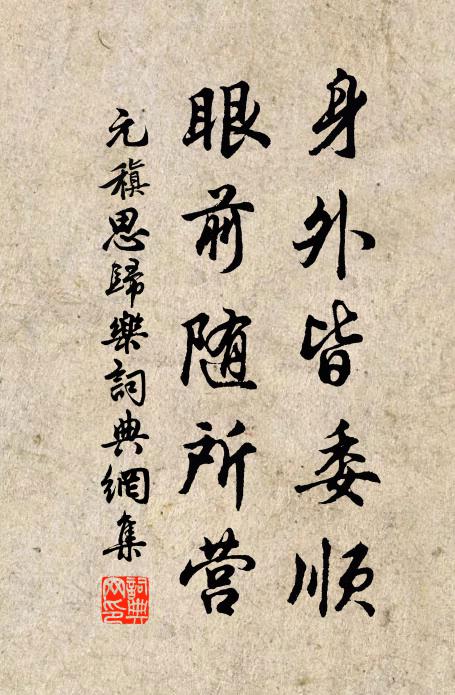 身外皆委順
眼前随所营
元稹思歸樂詞典網集
詞典网印